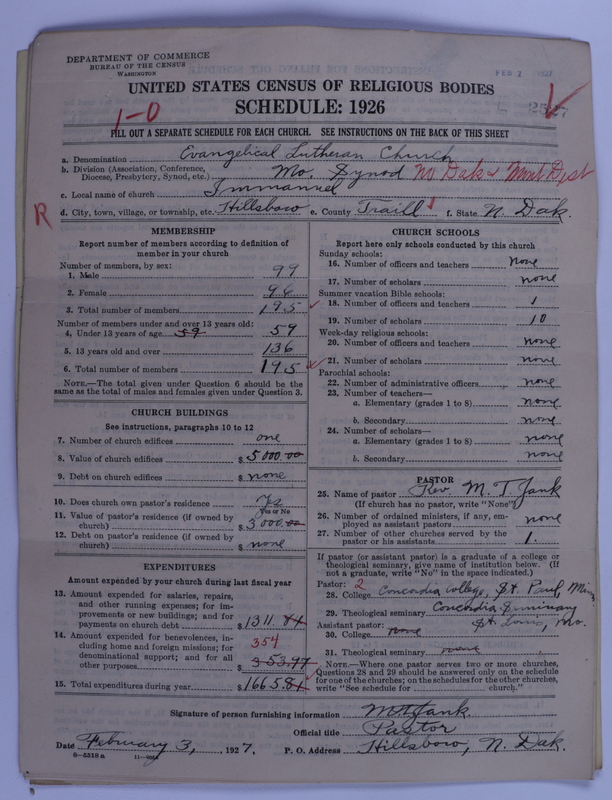 DEPARTMENT OF COMMERCE
BUREAU OF THE CENSUS
WASHINGTON
FEB 7 1927
UNITED STATES CENSUS OF RELIGIOUS BODIES
SCHEDULE: 1926
1-0
FILL OUT A SEPARATE SCHEDULE FOR EACH CHURCH. SEE INSTRUCTIONS ON THE BACK OF THIS SHEET
a. Denomination Evangelical Lutheran Church
b. Division (Association, Conference, Diocese, Presbytery, Synod, etc.) Mo. Synod No Dak & Mont Dist
c. Local name of church Immanuel
R
d. City, town, village, or township, etc. Hillsboro e. County Traill f. State N. Dak.
MEMBERSHIP
Report number of members according to definition of
member in your church
Number of members, by sex:
1. Male 99
2. Female 96
3. Total number of members 195
Number of members under and over 13 years old:
4. Under 13 years of age 59 59
5. 13 years old and over 136
6. Total number of members 195
NOTE.—The total given under Question 6 should be
same as the total of males and females given under Question 3.
CHURCH BUILDINGS
See instructions, paragraphs 10 to 12
7. Number of church edifices one
8. Value of church edifices $ 5000.00
9. Debt on church edifices $ none
10. Does church own pastor's residence Yes
Yes or No
11. Value of pastor's residence (if owned by
church) $ 3000.00
12. Debt on pastor's residence (if owned by
church) $ none
EXPENDITURES
Amount expended by your church during last fiscal year
13. Amount expended for salaries, repairs,
and other running expenses; for im-
provements or new buildings; and for
payments on church debt $ 1311.84
14. Amount expended for benevolences, in-
cluding home and foreign missions; for
denominational support; and for all
other purposes 354 $ 353.97
15. Total expenditures during year $ 1665.81
CHURCH SCHOOLS
Report here only schools conducted by this church
Sunday schools:
16. Number of officers and teachers none
17. Number of scholars none
Summer vacation Bible schools:
18. Number of officers and teachers 1
19. Number of scholars 10
Week-day religious schools:
20. Number of officers and teachers none
21. Number of scholars none
Parochial schools:
22. Number of administrative officers none
23. Number of teachers—
a. Elementary (grades 1 to 8) none
b. Secondary none
24. Number of scholars—
a. Elementary (grades 1 to 8) none
b. Secondary none
PASTOR
25. Name of pastor Rev M. T. Jank
(If church has no pastor, write "None")
26. Number of ordained ministers, if any, em-
ployed as assistant pastors none
27. Number of other churches served by the
pastor or his assistants 1.
If pastor (or assistant pastor) is a graduate of a college or
theological seminary, give name of institution below. (If
not a graduate, write "No" in the space indicated.)
Pastor: 2
28. College Concordia College, St. Paul, Minn
29. Theological seminary Concordia Seminary
St. Louis, Mo.
Assistant pastor:
30. College none
31. Theological seminary none
NOTE.—Where one pastor serves two or more churches,
Questions 28 and 29 should be answered only on the schedule
for one of the churches; on the schedules for the other churches,
write "See schedule for church."
Signature of person furnishing information M T Jank
Official title Pastor
Date February 3, 1927. P. O. Address Hillsboro, N. Dak.
8-5318 a